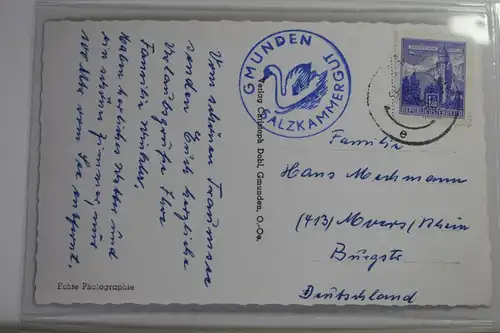 Vom schönen Traunsee
senden Euch herzliche
Urlaubsgrüße Ihre
Familie
Haben herrliches Wetter und
ein schönes Zimmer, nur
100 Mtr vom See entfernt.
Echte Photographie
GMUNDEN
SALZKAMMERGUT
Verlag Christoph Dohl, Gmunden, O.-Oe.
REPUBLIK ÖSTERREICH
e
Familie
Hans Meckmann
(413) Moers/Rhein
Deutschland